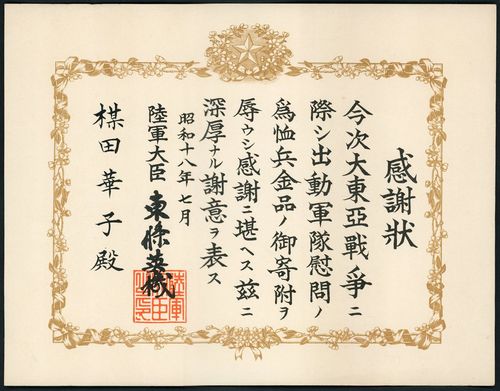 感謝狀
今次大東亞戰爭ニ
際シ出動軍隊慰問ノ
爲恤兵金品ノ御寄附ヲ
辱ウシ感謝ニ堪ヘス茲ニ
深厚ナル謝意ヲ表ス
昭和十八年七月
陸軍大臣 東條英機
楳田華子殿